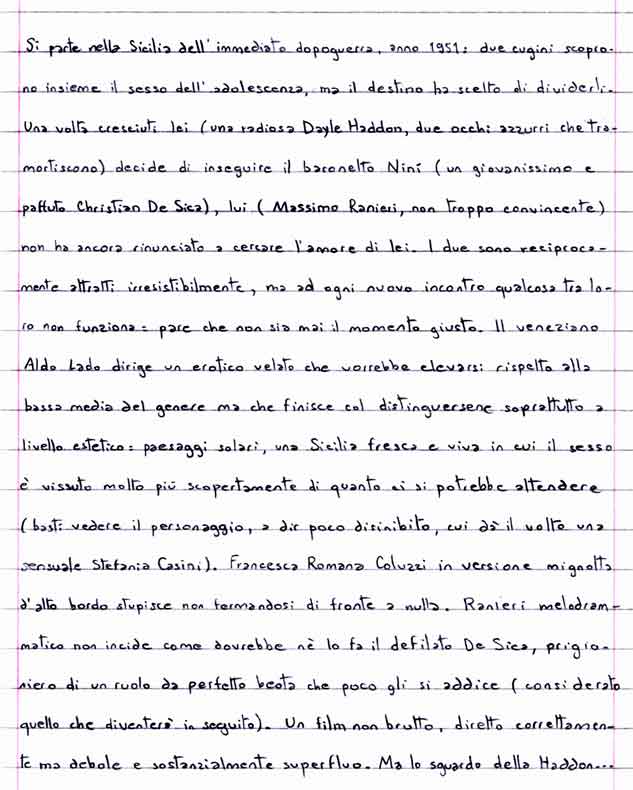 Si parte nella Sicilia dell'immediato dopoguerra, anno 1951: due cugini scopro-
no insieme il sesso dell'adolescenza, ma il destino ha scelto di dividerli.
Una volta cresciuti lei (una radiosa Dayle Haddon, due occhi azzurri che tra-
mortiscono) decide di inseguire il baronetto Niní (un giovanissimo e
paffuto Christian De Sica), lui (Massimo Ranieri, non troppo convincente)
non ha ancora rinunciato a cercare l'amore di lei. I due sono reciproca-
mente attratti irresistibilmente, ma ad ogni nuovo incontro qualcosa tra lo-
ro non funziona: pare che non sia mai il momento giusto. Il veneziano
Aldo Lado dirige un erotico velato che vorrebbe elevarsi rispetto alla
bassa media del genere ma che finisce col distinguersene soprattutto a
livello estetico: paesaggi solari, una Sicilia fresca e viva in cui il sesso
è vissuto molto più scopertamente di quanto ci si potrebbe attendere
(basti vedere il personaggio, a dir poco disinibito, cui dà il volto una
sensuale Stefania Casini). Francesca Romana Coluzzi in versione mignotta
d'alto bordo stupisce non fermandosi di fronte a nulla. Ranieri melodram-
matico non incide come dovrebbe nè lo fa il defilato De Sica, prigio-
niero di un ruolo da perfetto beota che poco gli si addice (considerato
quello che diventerà in seguito). Un film non brutto, diretto correttamen-
te ma debole e sostanzialmente superfluo. Ma lo sguardo della Haddon...